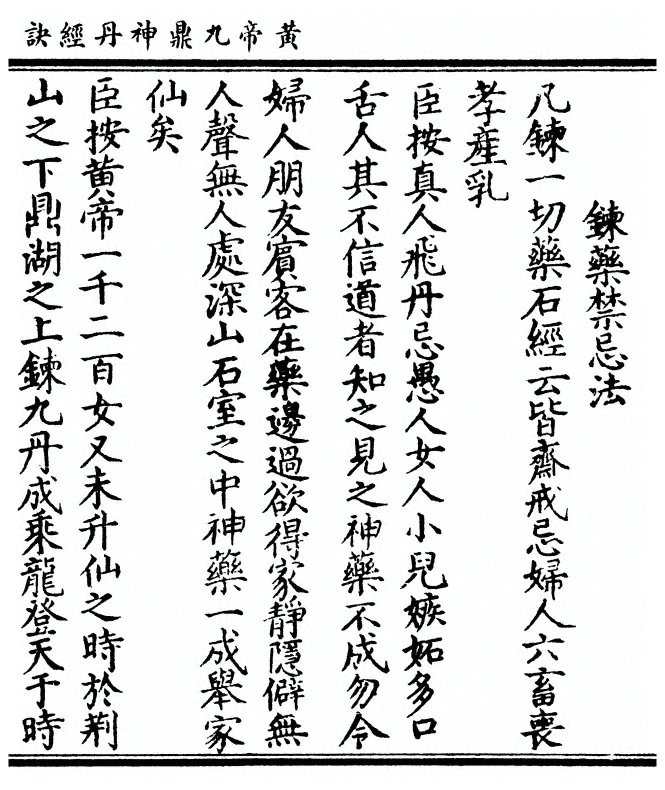 黃帝九鼎神丹經訣
鍊藥禁忌法
凡鍊一切藥石經云皆齋戒忌婦人六畜喪
孝產乳
臣按真人飛丹忌愚人女人小兒嫉妬多口
舌人其不信道者知之見之神藥不成勿令
婦人朋友賓客在藥邊過欲得家靜隱僻無
人聲無人處深山石室之中神藥一成舉家
仙矣
臣按黃帝一千二百女又未升仙之時於荆
山之下鼎湖之上鍊九丹成乘龍登天于時